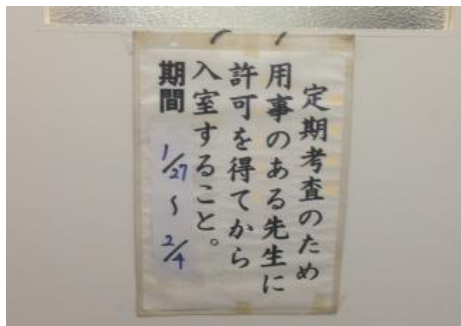 定期考査のため
用事のある先生に
許可を得てから
入室すること。
期間 1/27 〜 2/4